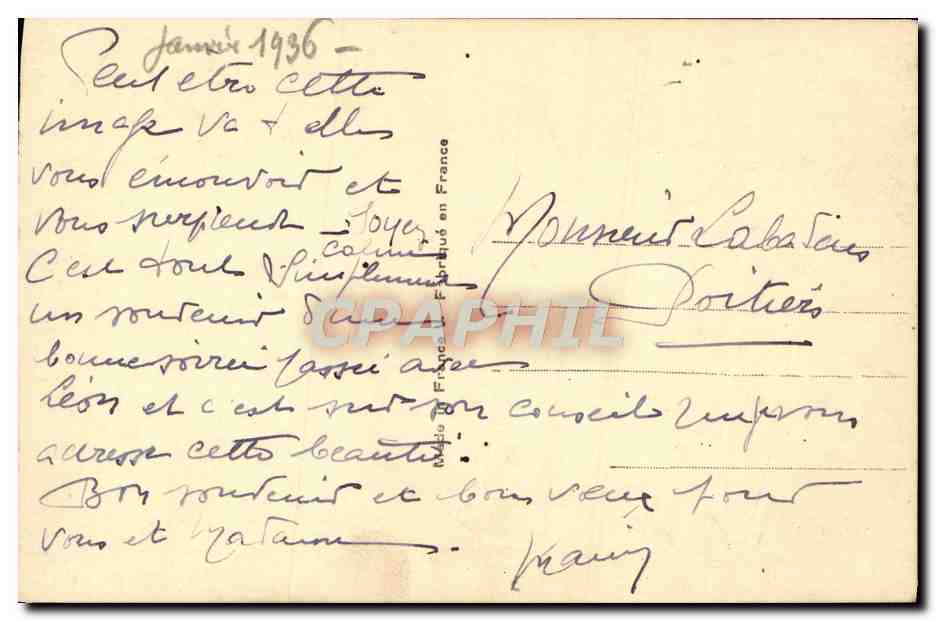 Janvier 1936 -
Peut etre cette
image va t elle
vous émouvoir et
vous surprendre Soyez
calme
C'est tout Simplement
un souvenir d'une
bonne soirée passée avec
Léon et c'est sur son conseil que je vous
adresse cette beauté.
Bon souvenir et bons vœux pour
vous et Madame.
Monsieur
Poitiers
Made in France Fabriqué en France
CPAPHIL